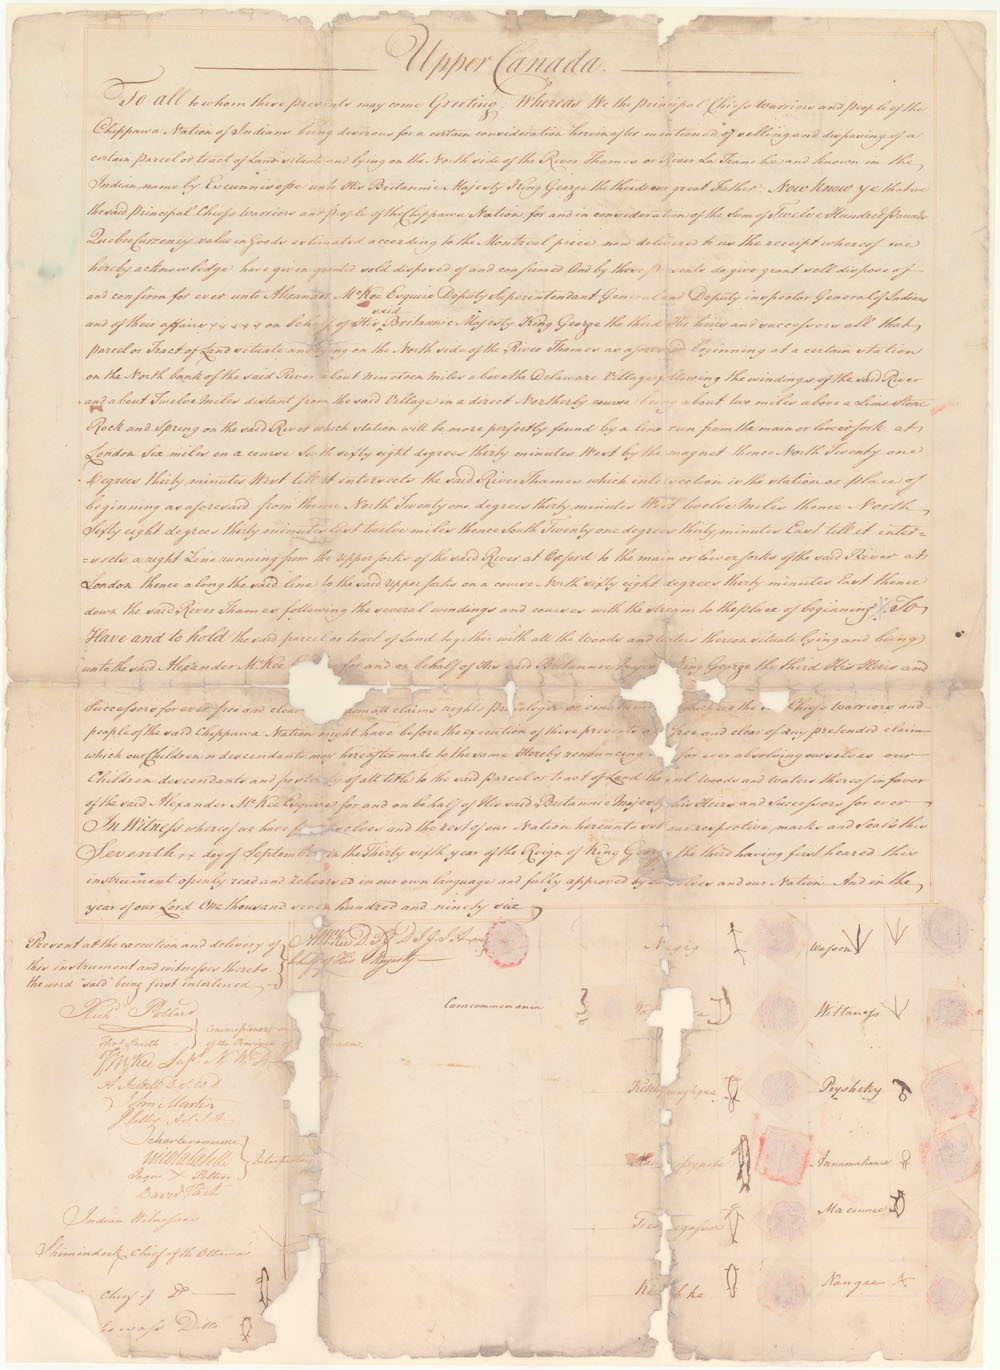 Upper Canada.
To all to whom these presents may come Greeting; Whereas We the principal Chiefs Warriors and people of the
Chippawa Nation of Indians being desirous for a certain consideration hereinafter mentioned of selling and disposing of a
certain parcel or tract of Land situate and lying on the North side of the River Thames or River La Tranche and known in the
Indian name by Escunnisepe unto His Britannic Majesty King George the third our great Father. Now know ye that we
the said principal Chiefs Warriors and people of the Chippawa Nation, for and in consideration of the sum of Twelve Hundred pounds
Quebec Currency value in Goods estimated according to the Montreal price now delivered to us the receipt whereof we
hereby acknowledge have given granted sold disposed of and confirmed And by these presents do give grant sell dispose of
and confirm for ever unto Alexander McKee Esquire Deputy Superintendant General and Deputy inspector General of Indians
said
and of their affairs x x x x x on behalf of His Britannic Majesty King George the third His heirs and successors all that
parcel or Tract of Land situate and lying on the North side of the River Thames as aforesaid beginning at a certain station
on the North bank of the said River about nineteen miles above the Delaware Village following the windings of the said River
and about Twelve miles distant from the said Village in a direct Northerly course being about two miles above a Lime Stone
Rock and Spring on the said River which station will be more perfectly found by a line run from the main or lower fork at
London Six miles on a course South sixty eight degrees thirty minutes West by the magnet thence North Twenty one
Degrees thirty minutes West till it intersects the said River Thames which intersection is the station or place of
beginning as aforesaid from thence North Twenty one degrees thirty minutes West twelve miles thence North
Sixty eight degrees thirty minutes East twelve miles thence South Twenty one degrees thirty minutes East till it inter=
=sects a right Line running from the upper forks of the said River at Oxford to the main or lower forks of the said River at
London thence along the said line to the said upper forks on a course North sixty eight degrees thirty minutes East thence
down the said River Thames following the several windings and courses with the stream to the place of beginning To
Have and to hold the said parcel or tract of Land together with all the Woods and waters thereon situate lying and being
unto the said Alexander McKee for and on behalf of His said Britannic King George the third His Heirs and
Successors for ever free and clear from all claims rights privileges or which we the Chiefs Warriors and
people of the said Chippawa Nation might have before the execution of these presents and free and clear of any pretended claim
which our Children or descendants may hereafter make to the same Hereby renouncing for ever absolving ourselves our
Children descendants and posterity of all title to the said parcel or tract of Land the soil Woods and Waters thereof in favor
of the said Alexander McKee Esquire for and on behalf of His said Britannic Majesty his Heirs and Successors for ever
In Witness whereof we have for ourselves and the rest of our Nation hereunto set our respective marks and Seals this
Seventh x x day of September in the Thirty sixth year of the Reign of King George the third having first heard this
instrument openly read and rehearsed in our own language and fully approved by ourselves and our Nation And in the
year of our Lord One thousand seven hundred and ninety six
Present at the execution and delivery of
this instrument and witnesses thereto
the word "said" being first interlined
behalf of His Majesty
Richd Pollard
Thos Smith
Commissioners
of the Province of
T McKee Supt N.W.D.
John Martin
J Selby
Interpreters
David
Indian Witnesses
Shimindock Chief of the Ottawas
Chief of Do
Ditto
Negig
Wasson
Cancommenanea
Wittaness
Peyshiky
Annamakance
Macounce
Nangee